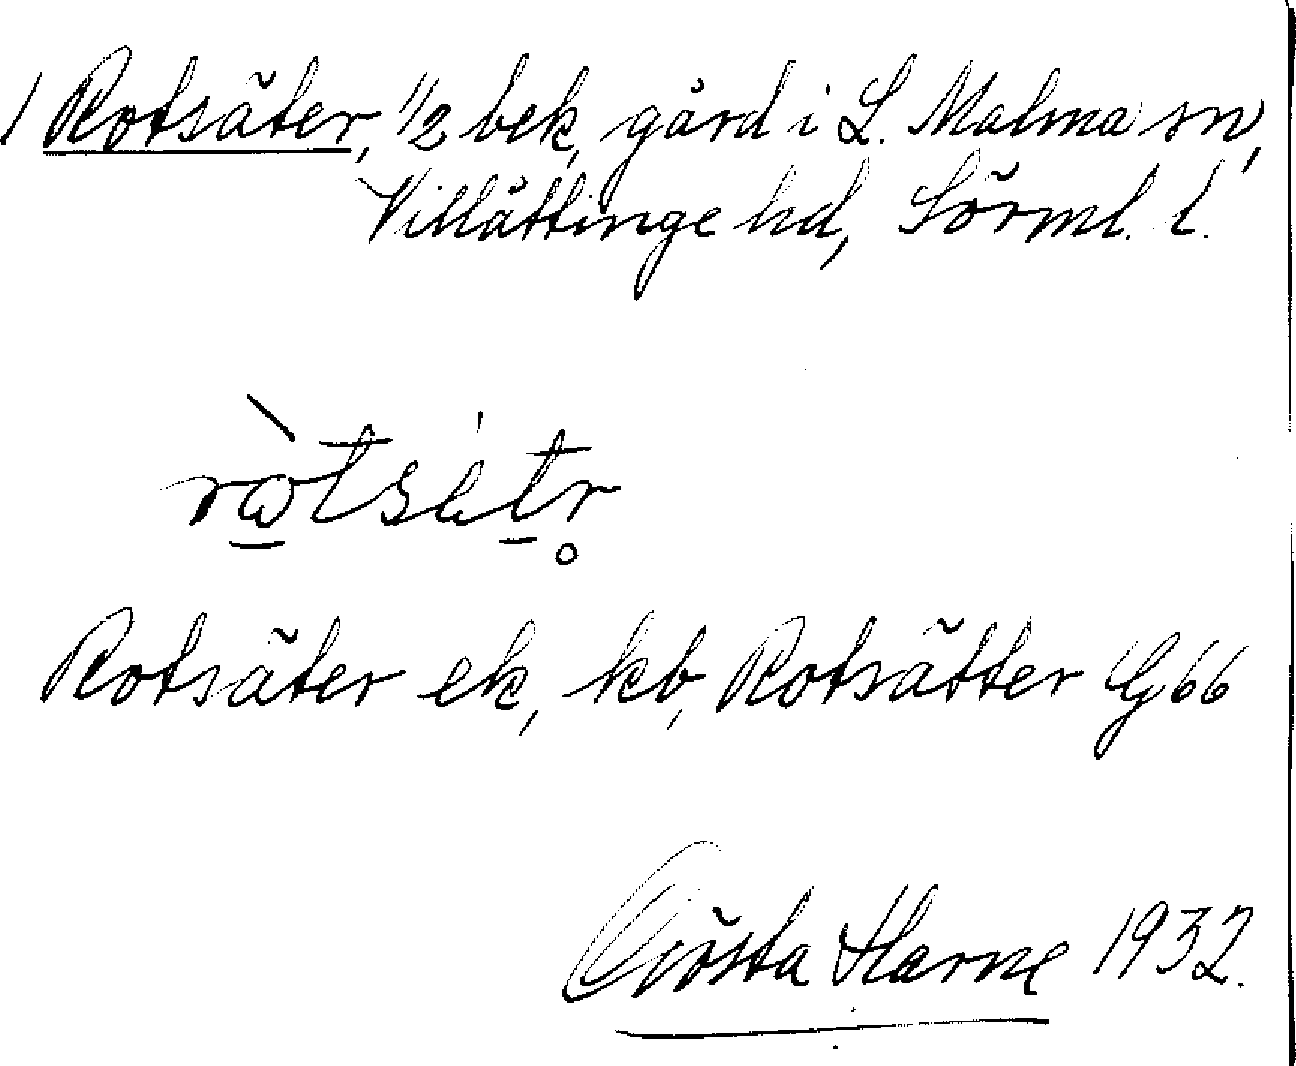 1 Rotsäter, 1/2 bek, gård i L. Malma sn,
Villåttinge hd, Sörml. l.
Rotsäter ek, kb, Rotsätter G 66
Gösta Harne 1932.